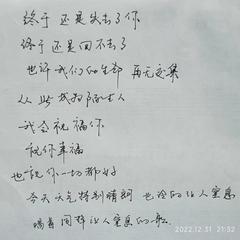 终于 还是失去了你
终于 还是回不去了
也许 我们的生命 再无交集
从此 成为陌生人
我会祝福你
祝你幸福
也祝你一切都好
今天天气特别晴朗 也冷的让人窒息
听着同样让人窒息的歌
2022.12.31 21:32